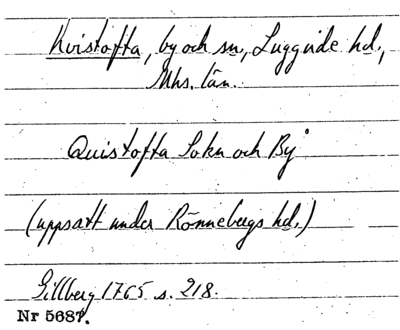 Kvistofta, by och sn, Luggude hd.,
Mhs. län.
Quistofta Sokn och By
(uppsatt under Rönnebergs hd.)
Gillberg 1765 s. 218.
Nr 5687.